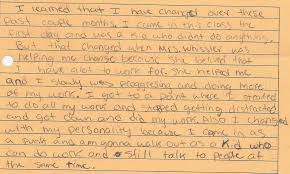 I learned that I have changed over these
past couple months. I came in this class the
first day and was a kid who didnt do anything.
But that changed when Mrs. Whissler was
helping me change because she believed that
I have alot to work for. she helped me
and I slowly was progressing and doing more
of my work. I got to a point where I started
to do all my work and stopped getting distracted
and got down and did my work. Also I changed
with my personality because I come in as
a punk and am gonna walk out as a kid who
can do work and still talk to people at
the same time.